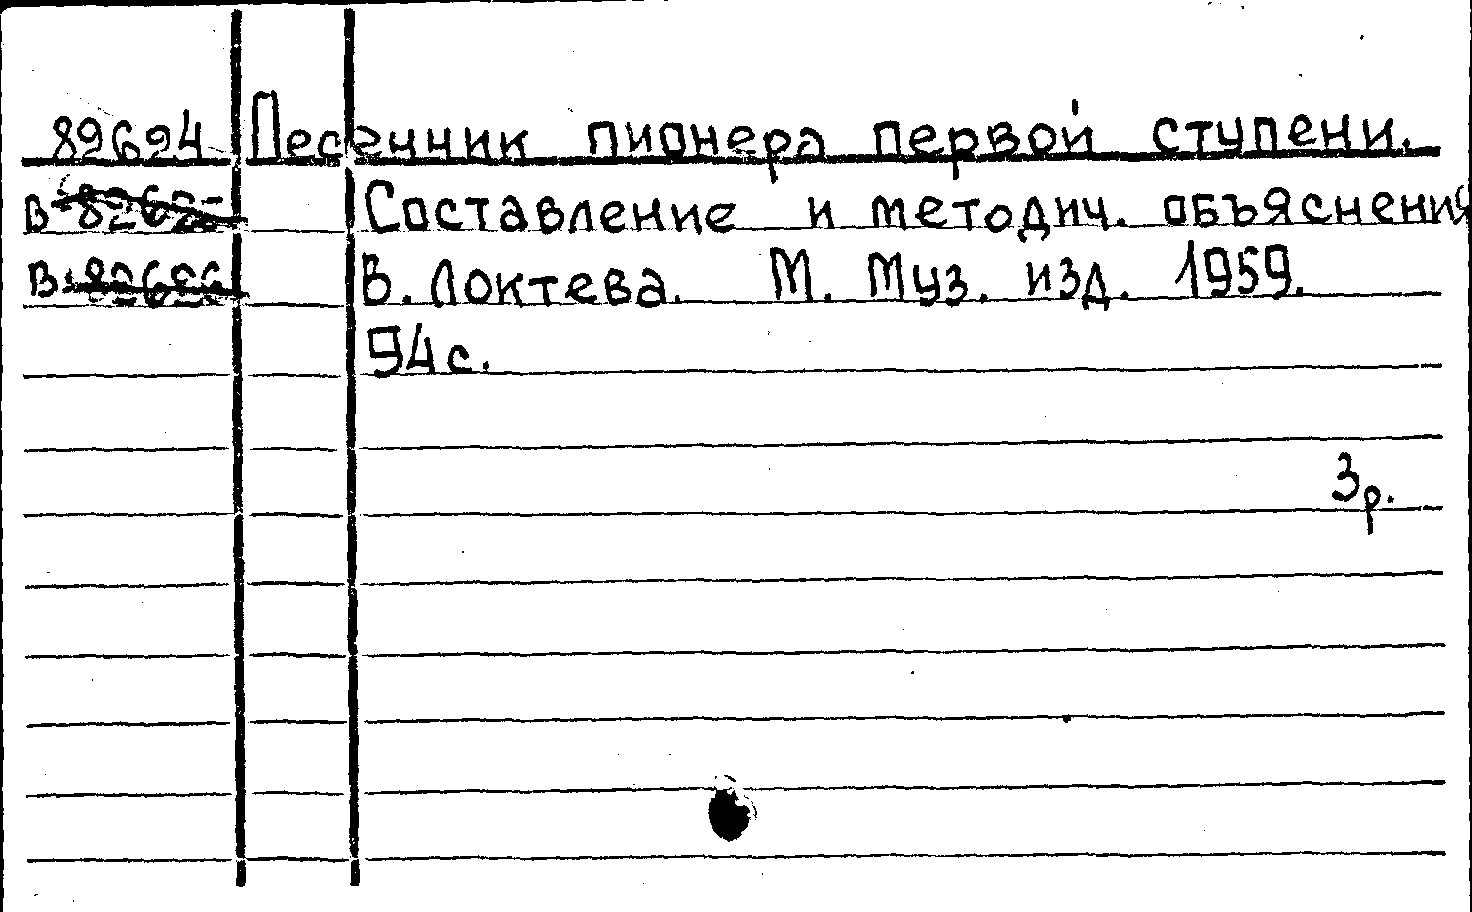 89694 Песенник пионера первой ступени.
В Составление и методич. объяснения
В В. Локтева. М. Муз. изд. 1959.
94 с.
3 р.